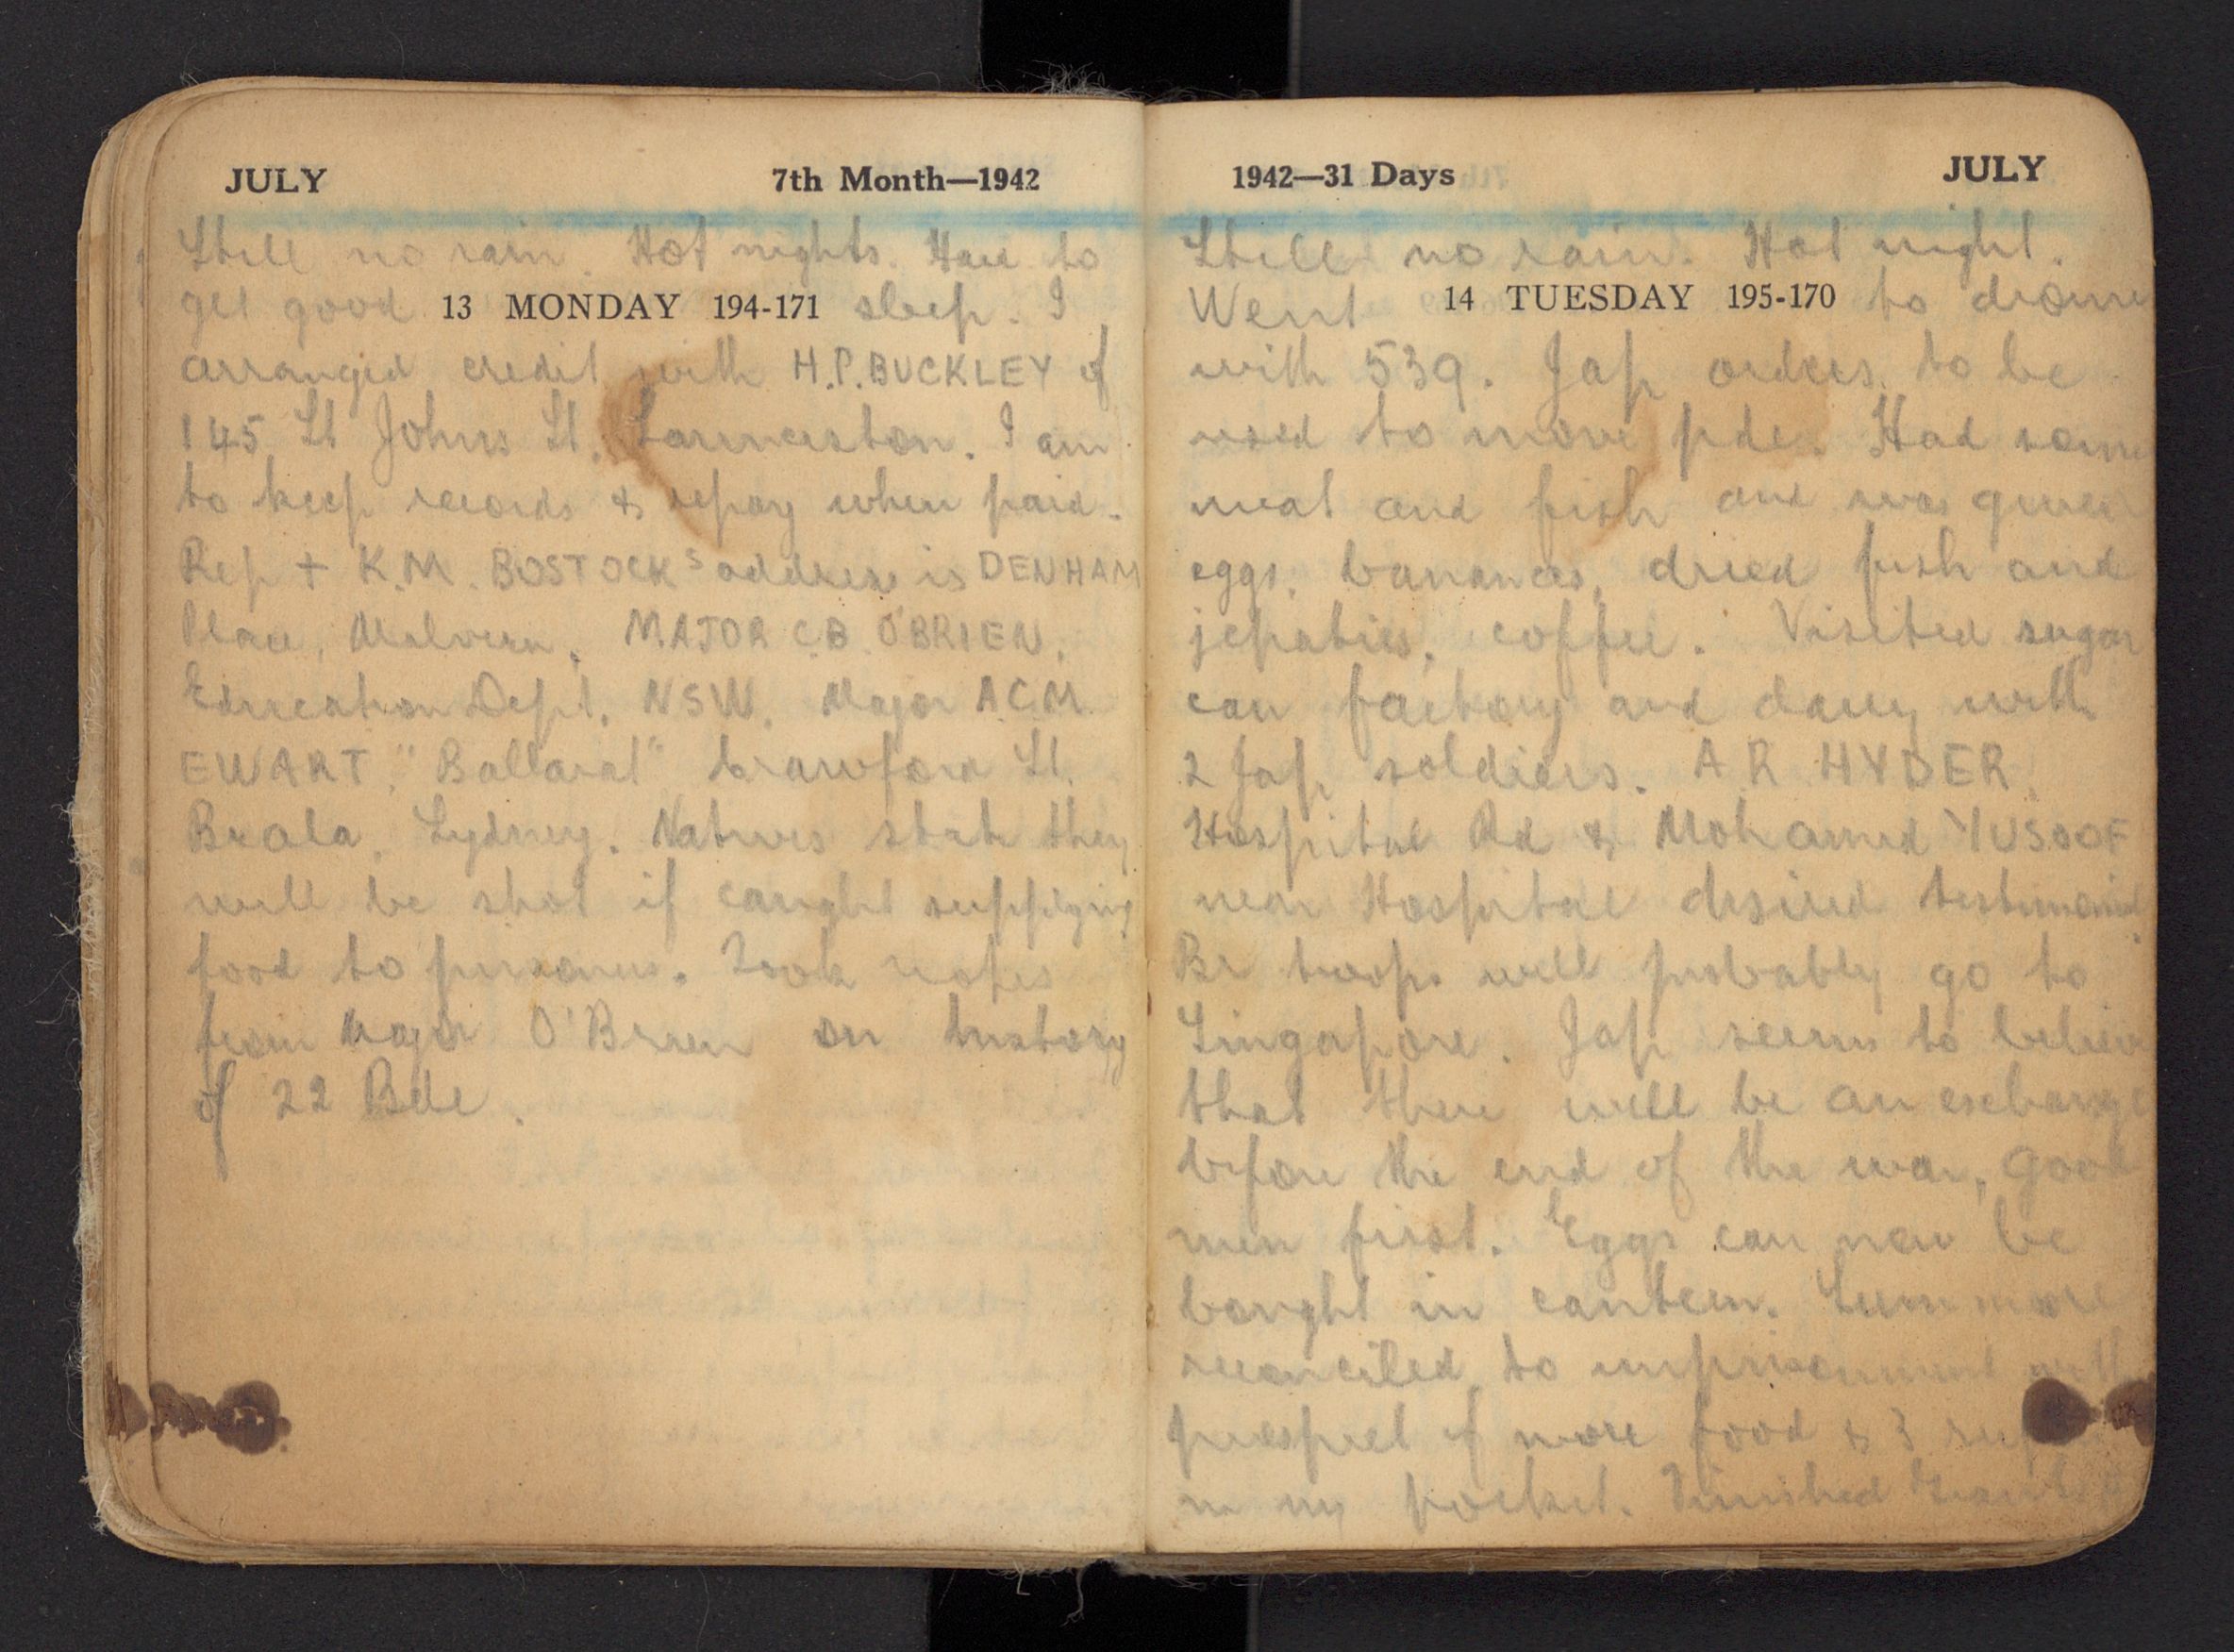 JULY 7th Month—1942
Still no rain. Hot nights. Hard to
get good 13 MONDAY 194-171 sleep. I
arranged credit with H.P. BUCKLEY of
145 St Johns St. Launceston. I am
to keep records & repay when paid.
Rep + K.M. BOSTOCKs address is DENHAM
Place, Malvern. MAJOR C.B. O'BRIEN,
Education Dept. NSW. Major A.C.M.
EWART, "Ballarat" Crawford St.
Brala, Sydney. Natives state they
will be shot if caught supplying
food to prisoners. Took notes
from Major O'Brien on history
of 22 Bde.
1942—31 Days JULY
Still no rain. Hot night.
Went 14 TUESDAY 195-170 to drome
with 539. Jap orders to be
used to move pde. Had some
meat and fish and was given
eggs, bananas, dried fish and
jepaties, coffee. Visited sugar
can factory and dairy with
2 Jap soldiers. A R HYDER,
Hospital Rd & Mohamed YUSOOF
near Hospital desired testimonial
Br troops will probably go to
Singapore. Jap seems to believe
that there will be an exchange
before the end of the war, good
men first. Eggs can now be
bought in canteen. more
reconciled to imprisonment with
prospect of more food & 3
in my pocket. Finished